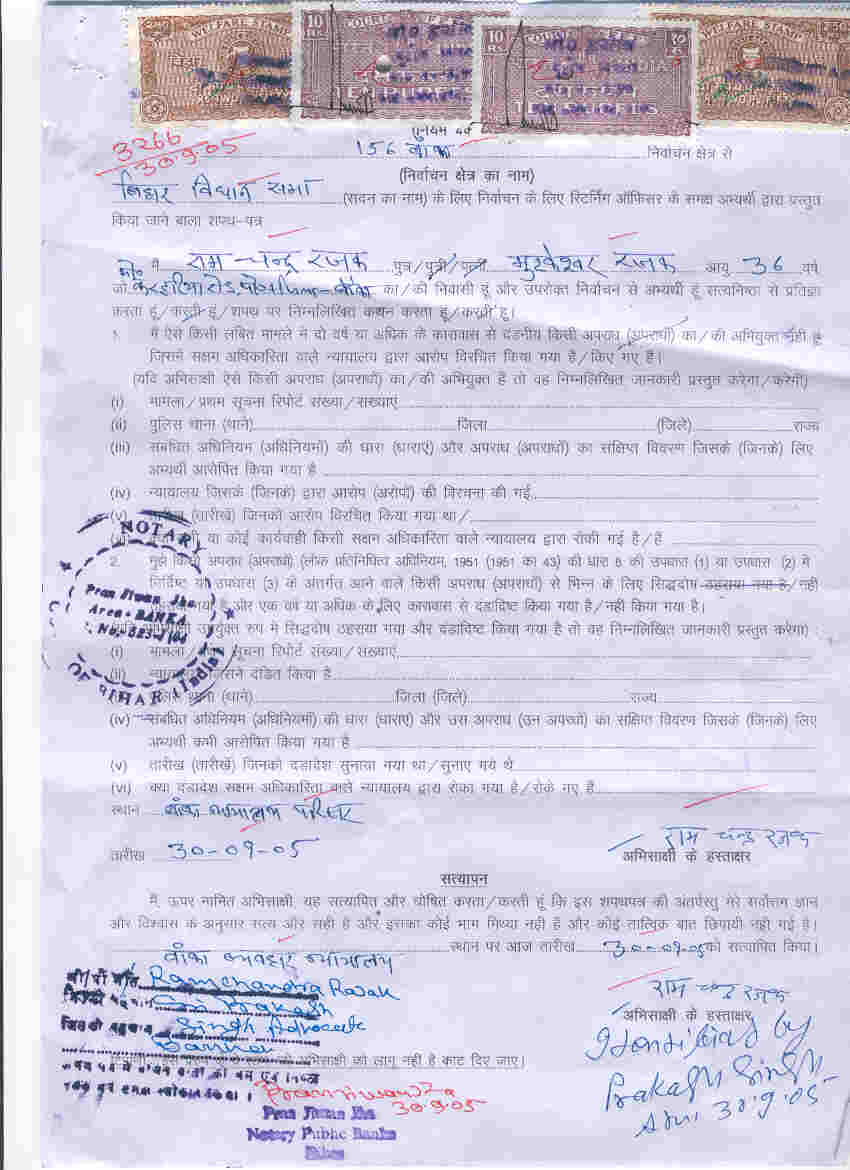 WELFARE STAMP
10 RS COURT FEE
10 RS COURT FEE INDIA १०
WELFARE STAMP
TEN RUPEES
TEN RUPEES
3266
30.9.05
156 बाँका निर्वाचन क्षेत्र से
(निर्वाचन क्षेत्र का नाम)
बिहार विधान सभा (सदन का नाम) के लिए निर्वाचन के लिए रिटर्निंग ऑफिसर के समक्ष अभ्यर्थी द्वारा प्रस्तुत
किया जाने बाला शपथ-पत्र
मैं राम चन्द्र रजक पुत्र/पुत्री/पत्नी मुखेश्वर रजक आयु 36 वर्ष
जो बाँका का/की निवासी हूं और उपरोक्त निर्वाचन से अभ्यर्थी हूं सत्यनिष्ठा से प्रतिज्ञा
करता हूं/करती हूं/शपथ पर निम्नलिखित कथन करता हूं/करती हूं।
1. मैं ऐसे किसी लंबित मामले में दो वर्ष या अधिक के कारावास से दंडनीय किसी अपराध (अपराधों) का/की अभियुक्त नहीं हूं
जिसमें सक्षम अधिकारिता वाले न्यायालय द्वारा आरोप विरचित किया गया है/किए गए हैं।
(यदि अभिसाक्षी ऐसे किसी अपराध (अपराधों) का/की अभियुक्त है तो वह निम्नलिखित जानकारी प्रस्तुत करेगा/करेगी)
(i) मामला/प्रथम सूचना रिपोर्ट संख्या/संख्याएं
(ii) पुलिस थाना (थाने) जिला (जिले) राज्य
(iii) संबंधित अधिनियम (अधिनियमों) की धारा (धाराएं) और अपराध (अपराधों) का संक्षिप्त विवरण जिसके (जिनके) लिए
अभ्यर्थी आरोपित किया गया है
(iv) न्यायालय जिसके (जिनके) द्वारा आरोप (अरोपों) की विरचना की गई
(v) तारीख (तारीखें) जिनको आरोप विरचित किया गया था/
या कोई कार्यवाही किसी सक्षम अधिकारिता वाले न्यायालय द्वारा रोकी गई है/हैं
2. मुझे किसी अपराध (अपराधों) (लोक प्रतिनिधित्व अधिनियम, 1951 (1951 का 43) की धारा 8 की उपधारा (1) या उपधारा (2) में
निर्दिष्ट या उपधारा (3) के अंतर्गत आने वाले किसी अपराध (अपराधों) से भिन्न के लिए सिद्धदोष ठहराया गया है/नहीं
गया है और एक वर्ष या अधिक के लिए कारावास से दंडादिष्ट किया गया है/नहीं किया गया है।
उपर्युक्त रुप में सिद्धदोष ठहराया गया और दंडादिष्ट किया गया है तो वह निम्नलिखित जानकारी प्रस्तुत करेगा)
(i) मामला/प्रथम सूचना रिपोर्ट संख्या/संख्याएं
(ii) न्यायालय जिसने दंडित किया है
थाना (थाने) जिला (जिले) राज्य
(iv) संबंधित अधिनियम (अधिनियमों) की धारा (धाराएं) और उस अपराध (उन अपराधों) का संक्षिप्त विवरण जिसके (जिनके) लिए
अभ्यर्थी कभी आरोपित किया गया है
(v) तारीख (तारीखें) जिनको दंडादेश सुनाया गया था/सुनाए गये थे
(vi) क्या दंडादेश सक्षम अधिकारिता वाले न्यायालय द्वारा रोका गया है/रोके गए हैं
NOTARY
Pran Jiwan Jha
Area - BANKA
OF BIHAR (India)
स्थान बाँका न्यायालय परिसर
तारीख 30-09-05
राम चन्द्र रजक
अभिसाक्षी के हस्ताक्षर
सत्यापन
मैं, ऊपर नामित अभिसाक्षी, यह सत्यापित और घोषित करता/करती हूं कि इस शपथपत्र की अंतर्वस्तु मेरे सर्वोत्तम ज्ञान
और विश्वास के अनुसार सत्य और सही है और इसका कोई भाग मिथ्या नहीं है और कोई तात्विक बात छिपायी नहीं गई है।
बाँका व्यवहार न्यायालय स्थान पर आज तारीख 30-09-05 को सत्यापित किया।
राम चन्द्र रजक
अभिसाक्षी के हस्ताक्षर
Ramchandra Rajak
Sri Prakash
Singh Advocate
Banka
अभिसाक्षी को लागू नहीं है काट दिए जाए।
Identified by
Prakash Singh
Adv. 30.9.05
Pran Jiwan Jha
30.9.05
Pran Jiwan Jha
Notary Public Banka
Bihar